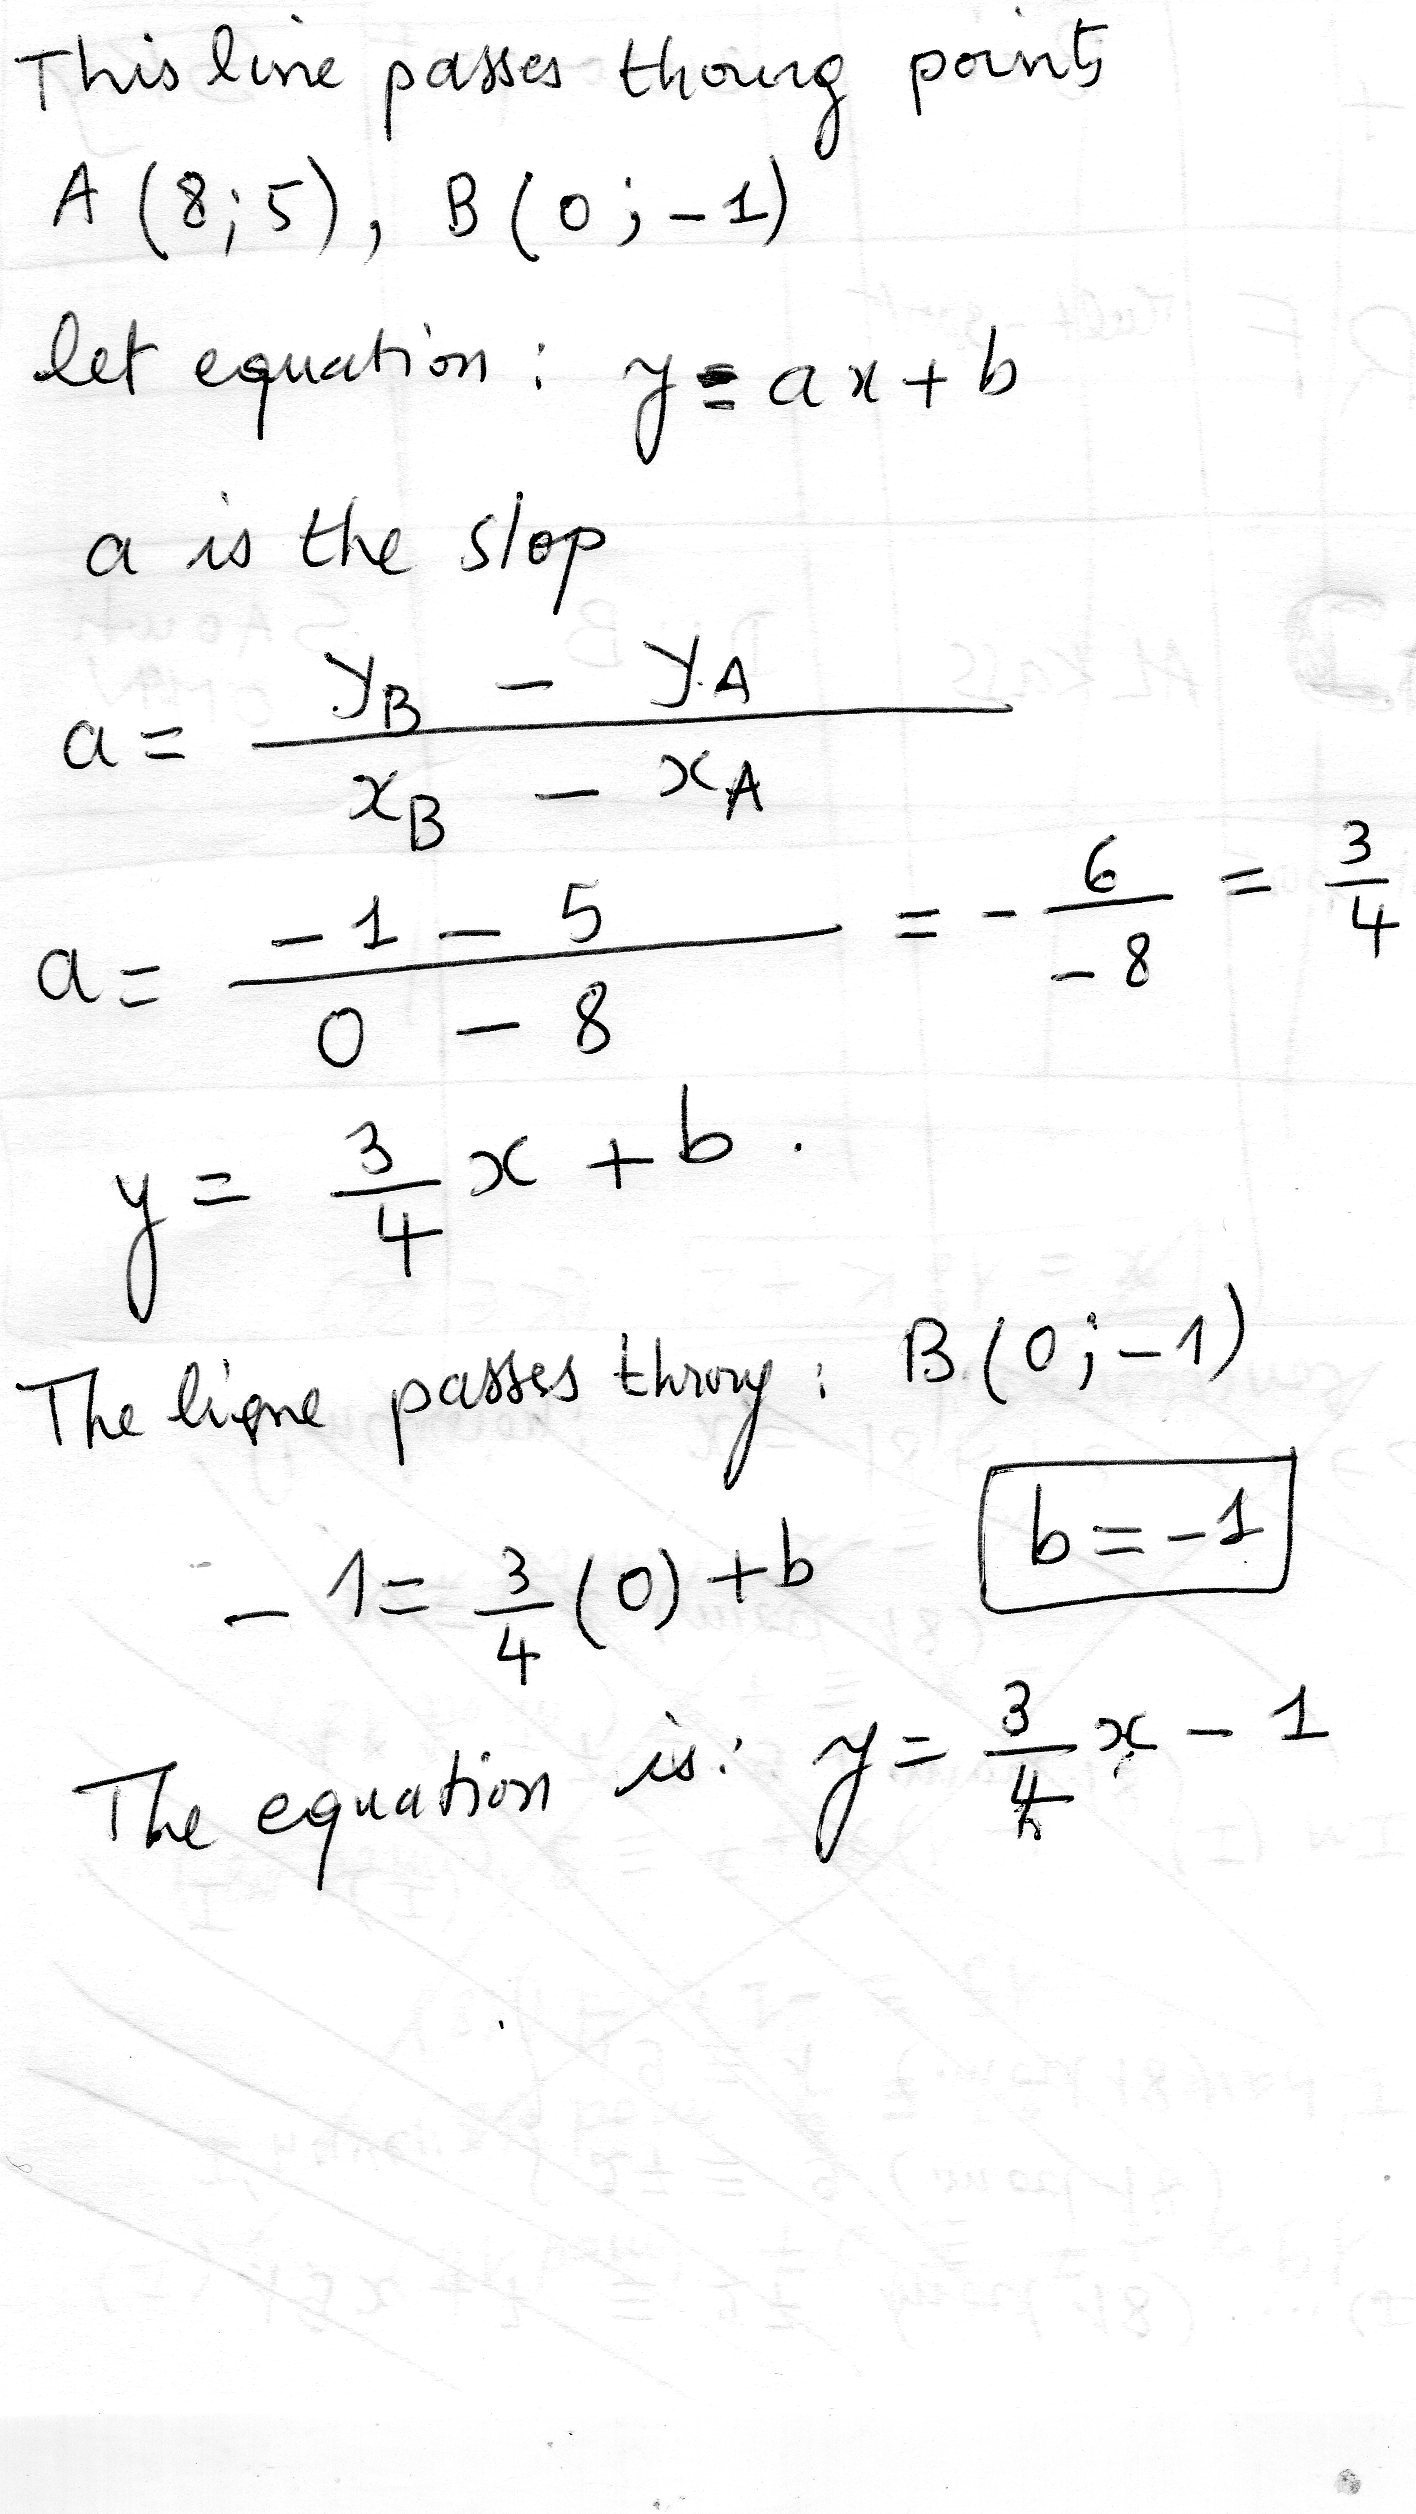 This line passes thoug points
A (8;5), B (0;-1)
let equation: y = ax + b
a is the slop
a = \frac{y_B - y_A}{x_B - x_A}
a = \frac{-1 - 5}{0 - 8} = - \frac{6}{-8} = \frac{3}{4}
y = \frac{3}{4} x + b .
The ligne passes throug : B (0;-1)
-1 = \frac{3}{4} (0) + b  b = -1
The equation is: y = \frac{3}{4} x - 1